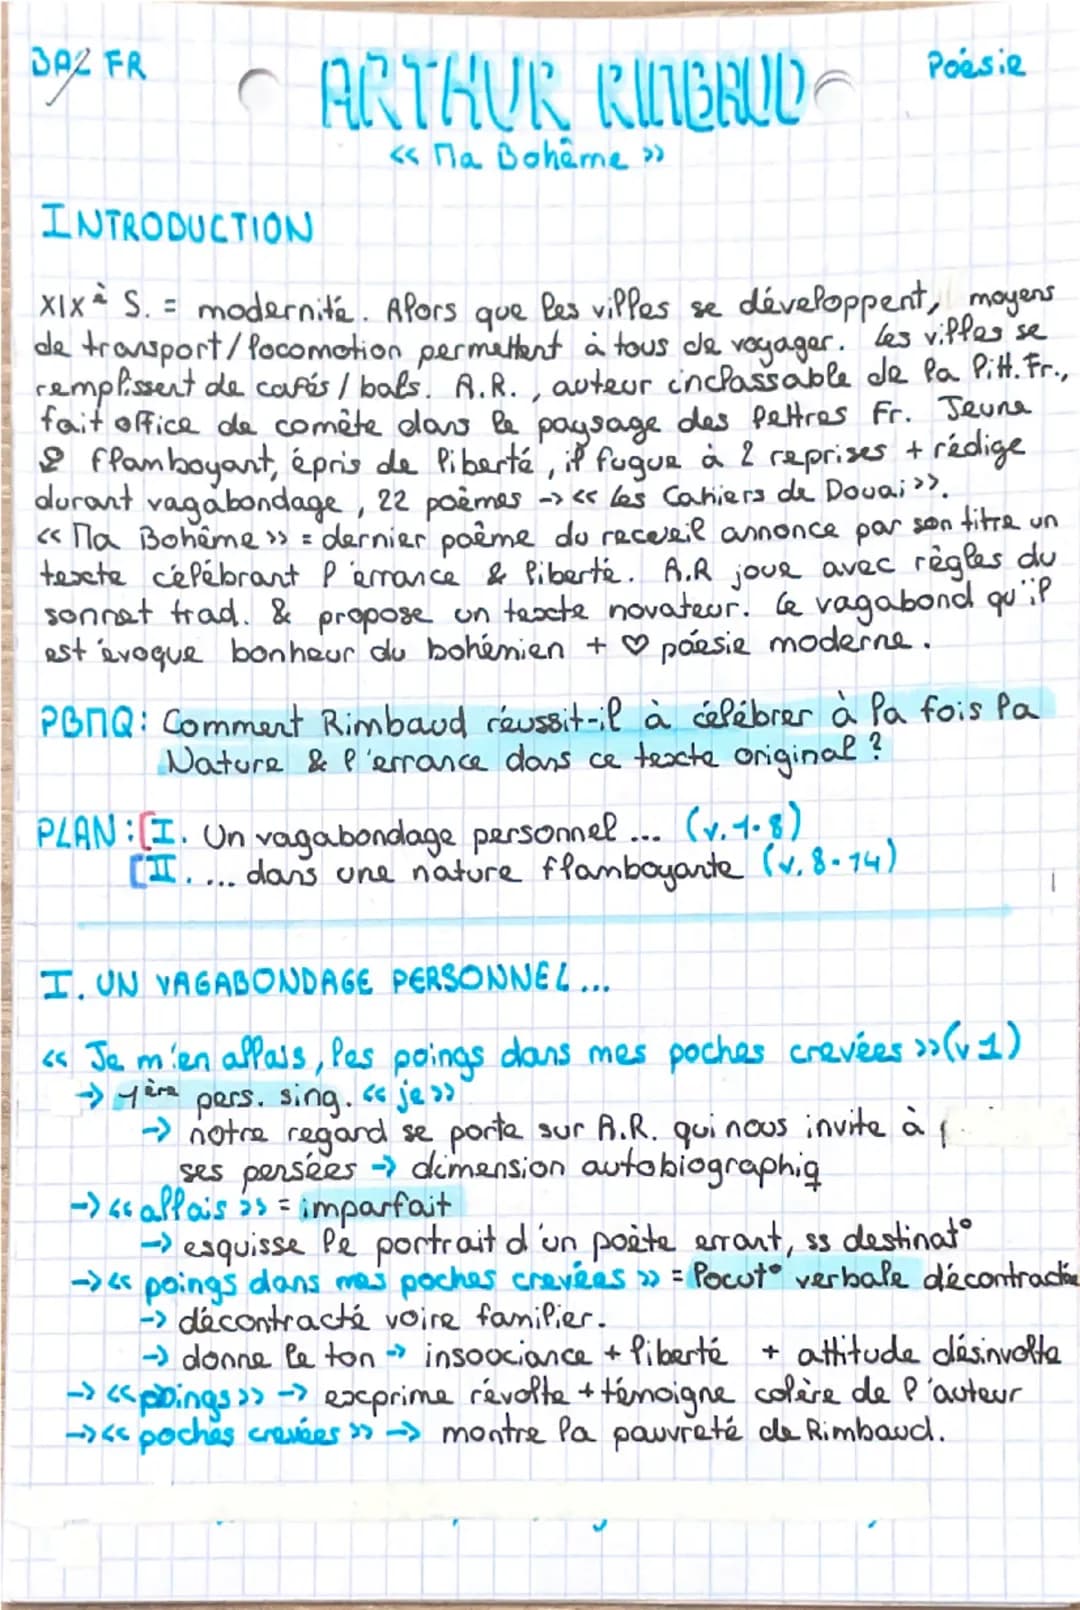 BAC FR
Poésie
ARTHUR RIMBAUD
<< Ma Bohême >>
INTRODUCTION
XIX è S. = modernité. Alors que les villes se développent, moyens
de transport/locomotion permettent à tous de voyager. Les villes se
remplissent de cafés / bals. A.R., auteur inclassable de la litt. Fr.,
fait office de comète dans le paysage des lettres Fr. Jeune
& flamboyant, épris de liberté, il fugue à 2 reprises + rédige
durant vagabondage, 22 poèmes -> << Les Cahiers de Douai >>.
<< Ma Bohême >> = dernier poème du recueil annonce par son titre un
texte célébrant l'errance & liberté. A.R joue avec règles du
sonnet trad. & propose un texte novateur. Le vagabond qu'il
est évoque bonheur du bohémien + ♡ poésie moderne.
PBMQ: Comment Rimbaud réussit-il à célébrer à la fois la
Nature & l'errance dans ce texte original ?
PLAN : [I. Un vagabondage personnel ... (v.1-8)
[II. ... dans une nature flamboyante (v.8-14)
I. UN VAGABONDAGE PERSONNEL...
<< Je m'en allais, les poings dans mes poches crevées >> (v1)
-> 1ère pers. sing. << je >>
-> notre regard se porte sur A.R. qui nous invite à
ses pensées -> dimension autobiographiq
-> << allais >> = imparfait
-> esquisse le portrait d'un poète errant, ss destinat°
-> << poings dans mes poches crevées >> = locut° verbale décontractée
-> décontracté voire familier.
-> donne le ton -> insouciance + liberté + attitude désinvolte
-> << poings >> -> exprime révolte + témoigne colère de l'auteur
-> << poches crevées >> -> montre la pauvreté de Rimbaud.